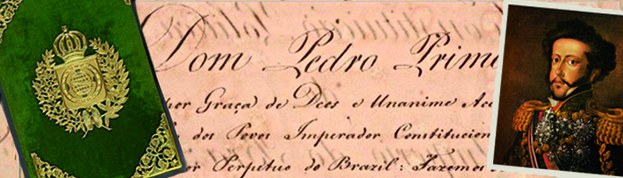 Dom Pedro Prim
por Graça de Deos e Unanime Ac
dos Povos Imperador Constitucion
or Perpetuo do Brazil: Fazemos